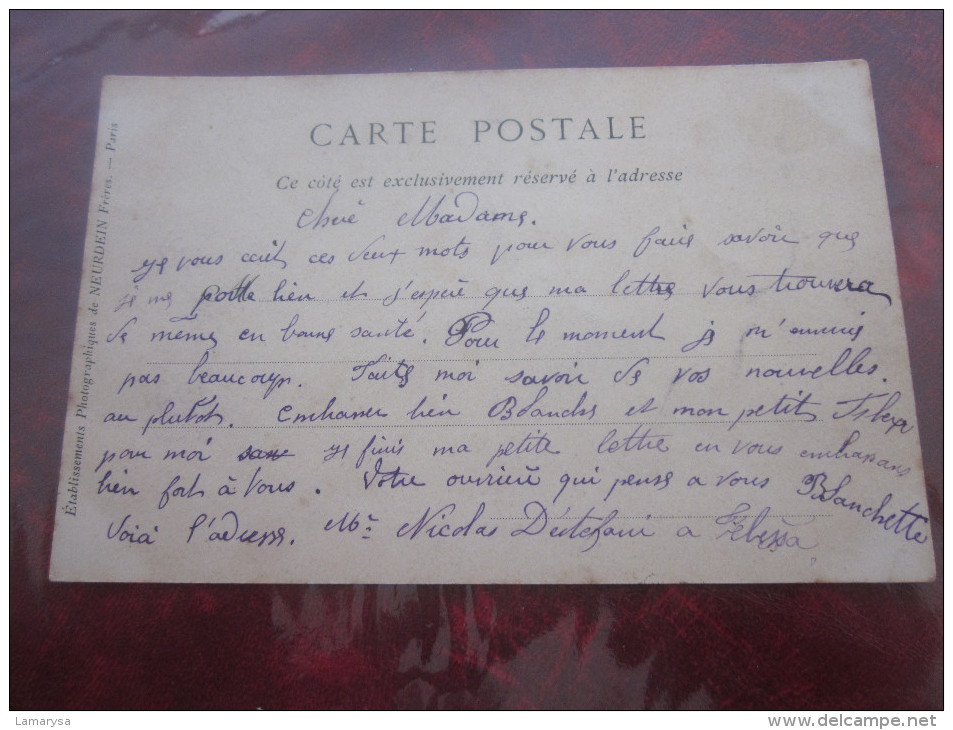 CARTE POSTALE
Ce côté est exclusivement réservé à l'adresse
Établissements Photographiques de NEURDEIN Frères. — Paris
Cheré Madame.
je vous ecrit ces deux mots pour vous faire savoir que
je me porte bien et j'espère que ma lettre vous trouvera
de même en bonne santé. Pour le moment je m'ennuie
pas beaucoup. Faite moi savoir de vos nouvelles.
au plutot. embrasser bien Blanche et mon petit
pour moi je finis ma petite lettre en vous embrasans
bien fort à vous. Votre ouvrière qui pense a vous Blanchette
Voici l'adresse. Mr Nicolas a Tebessa
Lamarysa
www.delcampe.net